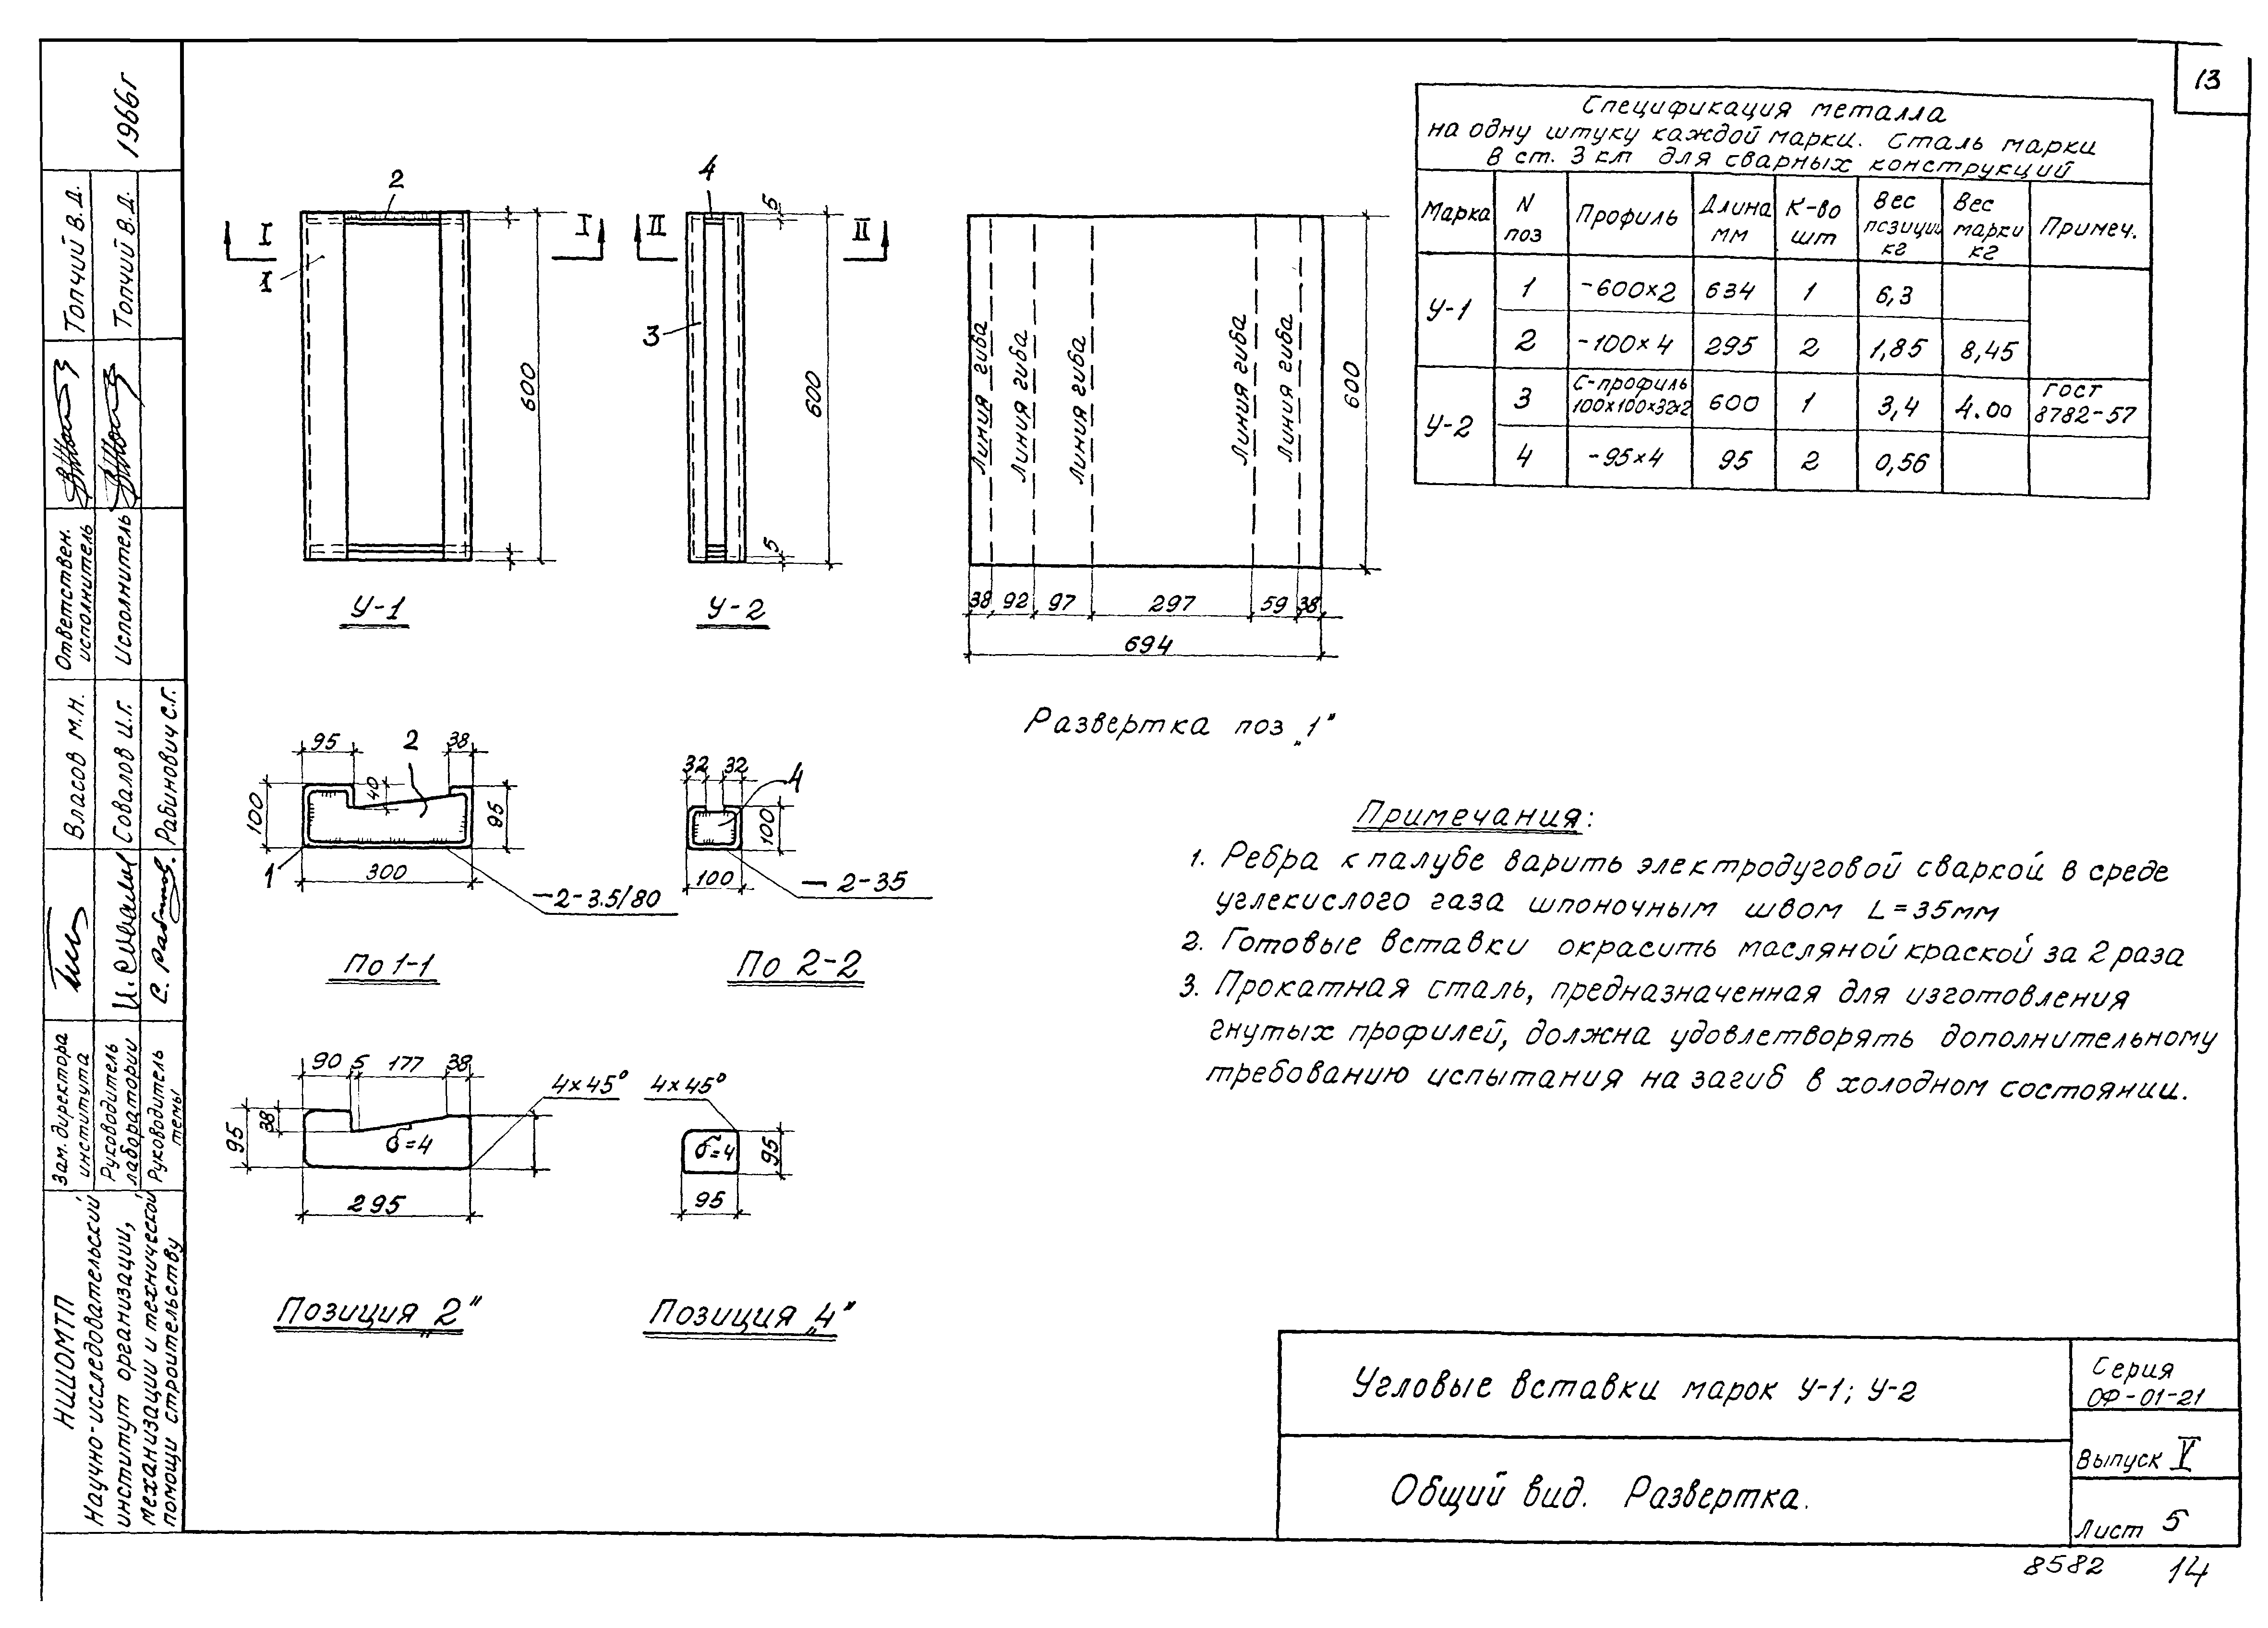 13
Спецификация металла
на одну штуку каждой марки. Сталь марки
В ст. 3 кп для сварных конструкций
Марка N поз Профиль Длина мм К-во шт Вес позиции кг Вес марки кг Примеч.
У-1 1 -600×2 634 1 6,3
2 -100×4 295 2 1,85 8,45
У-2 3 С-профиль 100×100×32×2 600 1 3,4 4.00 ГОСТ 8782-57
4 -95×4 95 2 0,56
I I
2
1
600
У-1
II II
4
3
5
5
600
У-2
Линия гиба
Линия гиба
Линия гиба
Линия гиба
Линия гиба
600
38 92 97 297 59 38
694
Развертка поз „1"
95 2 38
100 40 95
1 300
2-3.5/80
По 1-1
32 32 4
100
100
2-35
По 2-2
90 5 177 38
4×45°
95 38
б=4
295
Позиция „2"
4×45°
б=4 95
95
Позиция „4"
Примечания:
1. Ребра к палубе варить электродуговой сваркой в среде
углекислого газа шпоночным швом L=35мм
2. Готовые вставки окрасить масляной краской за 2 раза
3. Прокатная сталь, предназначенная для изготовления
гнутых профилей, должна удовлетворять дополнительному
требованию испытания на загиб в холодном состоянии.
Угловые вставки марок У-1; У-2
Общий вид. Развертка.
Серия
ОФ-01-21
Выпуск V
Лист 5
8582 14
1966г
Топчий В.Д.
Топчий В.Д.
Ответствен.
исполнитель
исполнитель
Власов М.Н.
Совалов И.Г.
Рабинович С.Г.
И. Совалов
С. Рабинов.
Зам. директора
института
Руководитель
лаборатории
Руководитель
темы
НИИОМТП
Научно-исследовательский
институт организации,
механизации и технической
помощи строительству